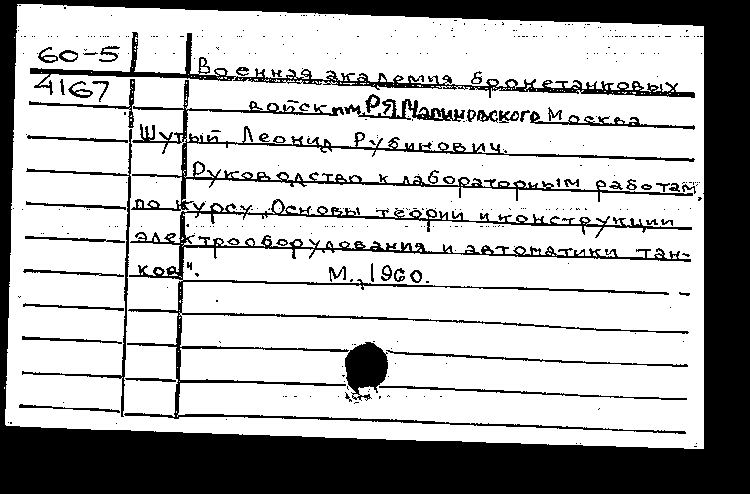 60-5
Военная академия бронетанковых
4167
войск им. Р.Я. Малиновского Москва
Шутый, Леонид Рувинович.
Руководство к лабораторным работам
по курсу „Основы теории и конструкции
электрооборудования и автоматики тан-
ков". М., 1960.